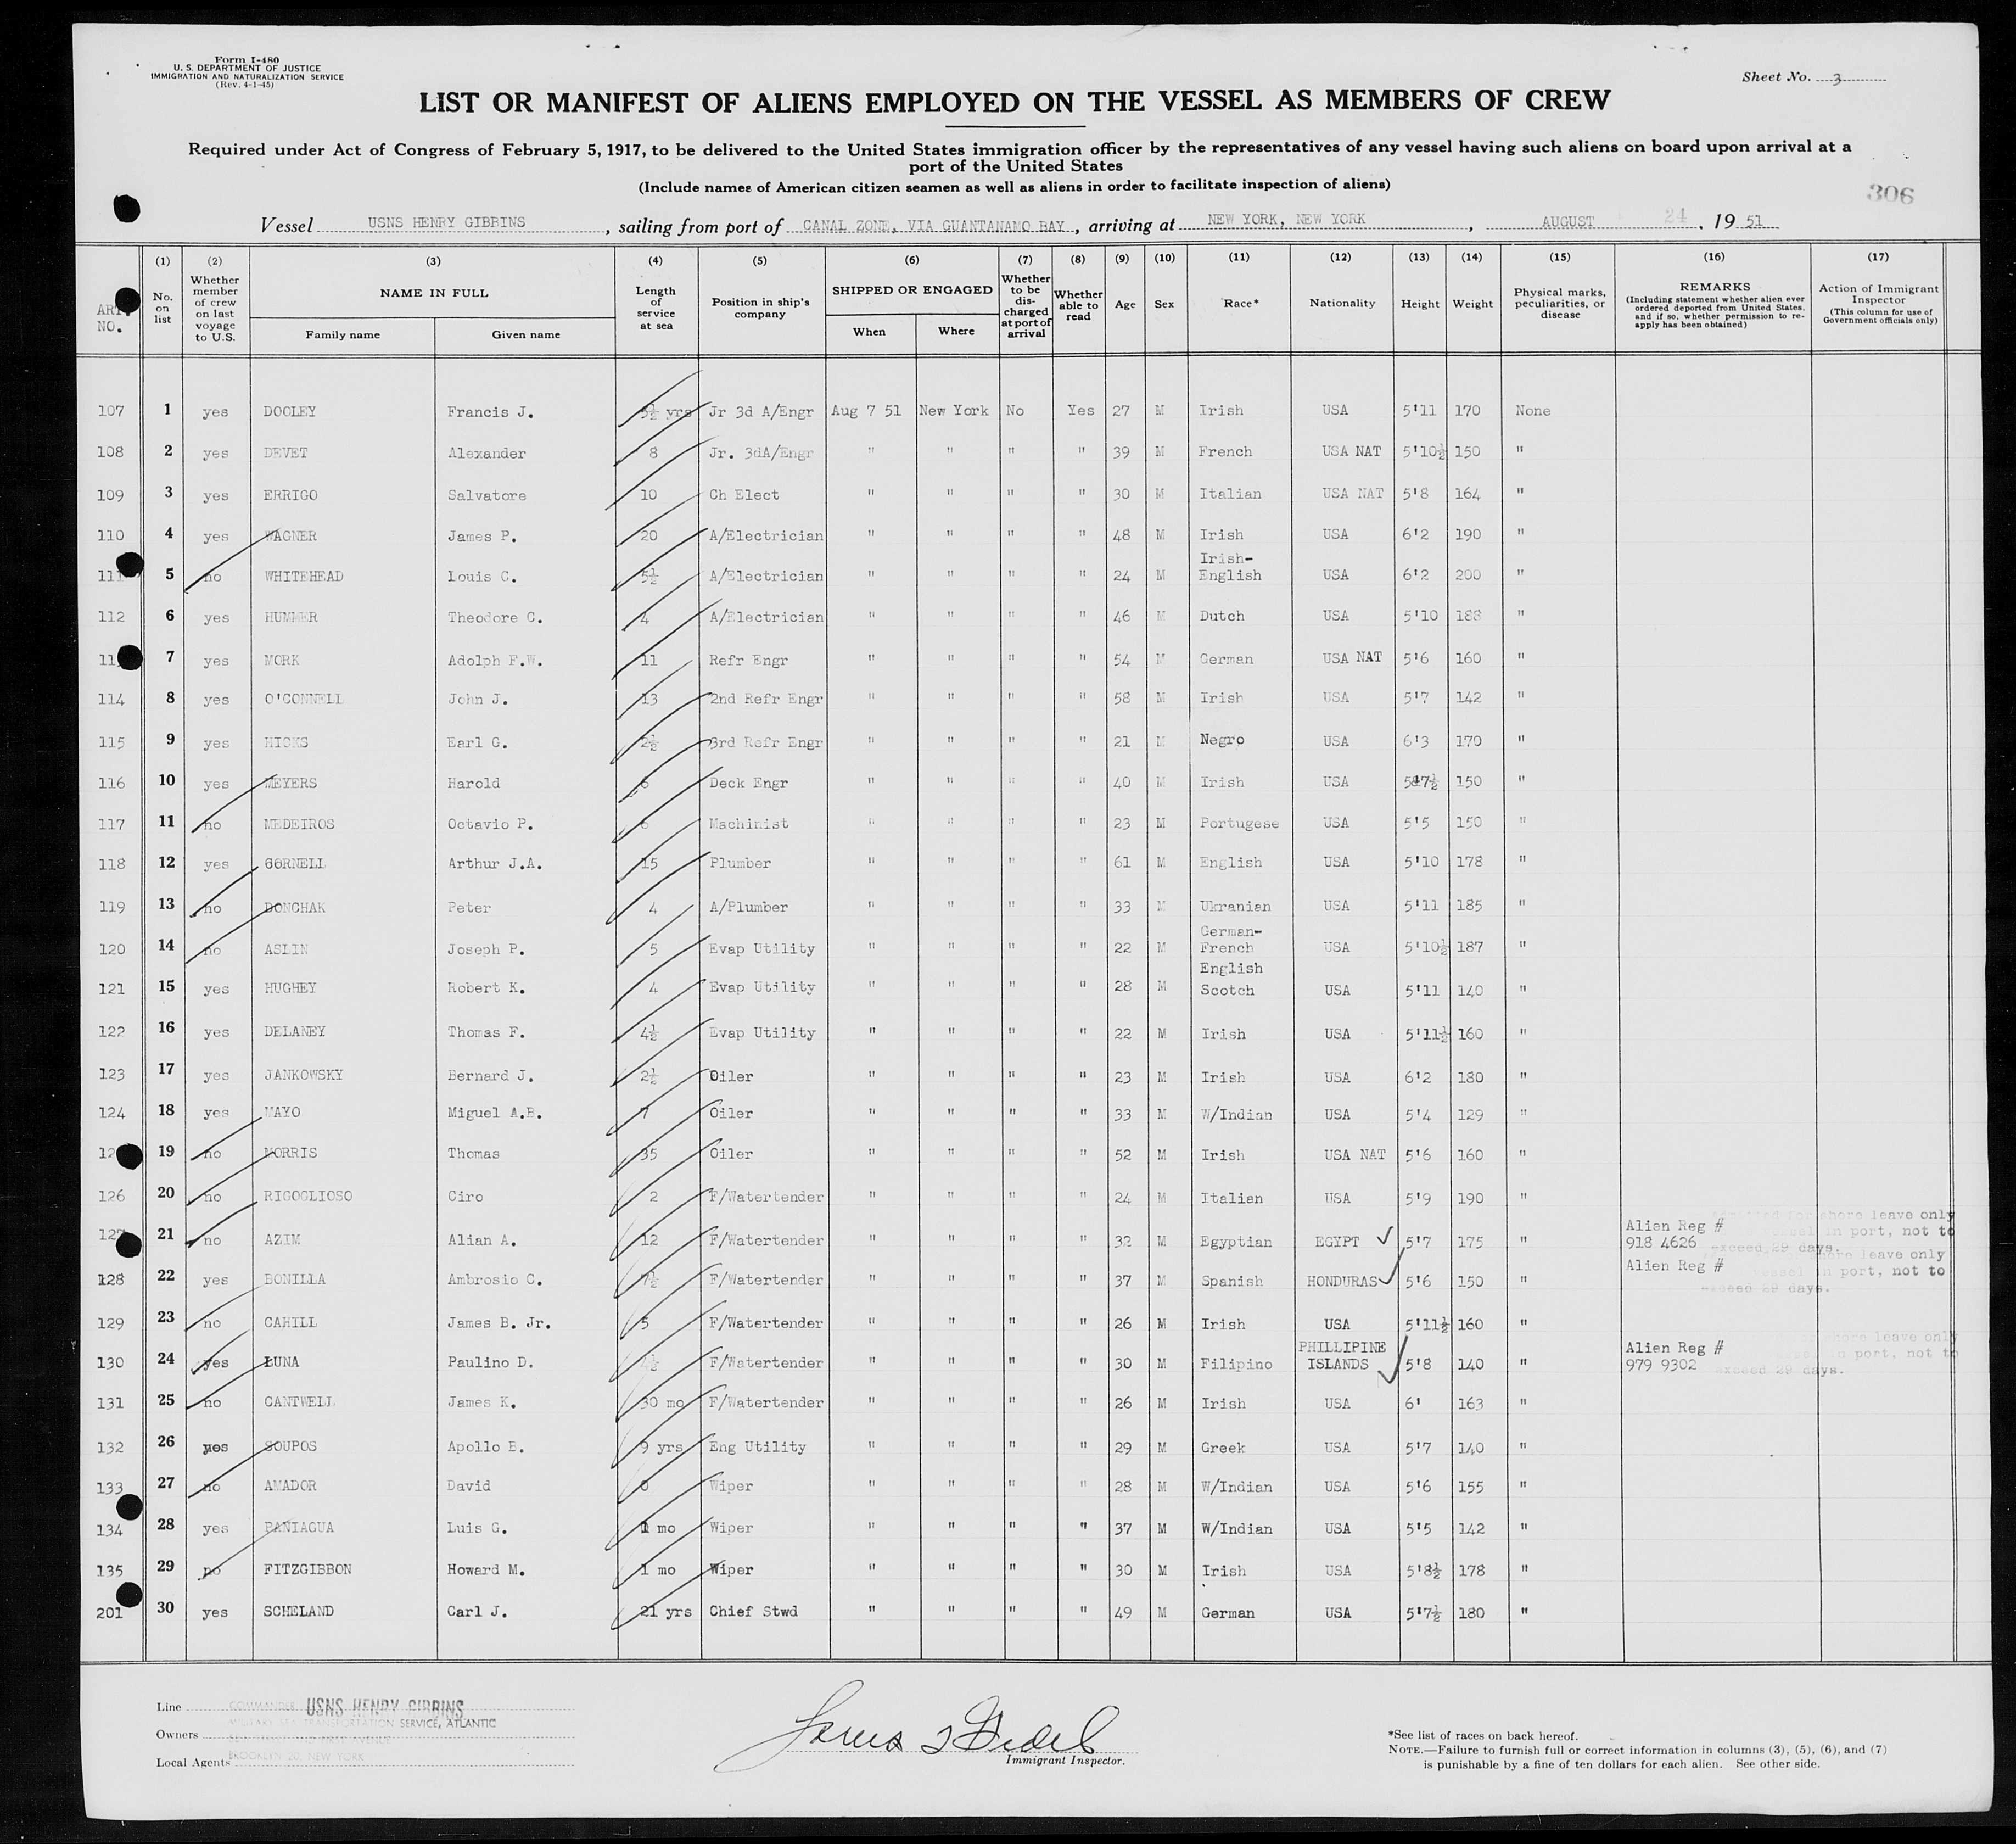 Form I-480
U. S. DEPARTMENT OF JUSTICE
IMMIGRATION AND NATURALIZATION SERVICE
(Rev. 4-1-45)
Sheet No. 3
LIST OR MANIFEST OF ALIENS EMPLOYED ON THE VESSEL AS MEMBERS OF CREW
Required under Act of Congress of February 5, 1917, to be delivered to the United States immigration officer by the representatives of any vessel having such aliens on board upon arrival at a
port of the United States
(Include names of American citizen seamen as well as aliens in order to facilitate inspection of aliens)
306
Vessel USNS HENRY GIBBINS, sailing from port of CANAL ZONE, VIA GUANTANAMO BAY, arriving at NEW YORK, NEW YORK, AUGUST 24, 19 51
ART. NO. (1) No. on list (2) Whether member of crew on last voyage to U.S. (3) NAME IN FULL Family name Given name (4) Length of service at sea (5) Position in ship's company (6) SHIPPED OR ENGAGED When Where (7) Whether to be discharged at port of arrival (8) Whether able to read (9) Age (10) Sex (11) Race* (12) Nationality (13) Height (14) Weight (15) Physical marks, peculiarities, or disease (16) REMARKS (Including statement whether alien ever ordered deported from United States, and if so, whether permission to re-apply has been obtained) (17) Action of Immigrant Inspector (This column for use of Government officials only)
107 1 yes DOOLEY Francis J. 5½ yrs Jr 3d A/Engr Aug 7 51 New York No Yes 27 M Irish USA 5'11 170 None
108 2 yes DEVET Alexander 8 Jr. 3dA/Engr " " " " 39 M French USA NAT 5'10½ 150 "
109 3 yes ERRIGO Salvatore 10 Ch Elect " " " " 30 M Italian USA NAT 5'8 164 "
110 4 yes WAGNER James P. 20 A/Electrician " " " " 48 M Irish USA 6'2 190 "
111 5 no WHITEHEAD Louis C. 5½ A/Electrician " " " " 24 M Irish-English USA 6'2 200 "
112 6 yes HUMMER Theodore C. 4 A/Electrician " " " " 46 M Dutch USA 5'10 188 "
11 7 yes MORK Adolph F.W. 11 Refr Engr " " " " 54 M German USA NAT 5'6 160 "
114 8 yes O'CONNELL John J. 13 2nd Refr Engr " " " " 58 M Irish USA 5'7 142 "
115 9 yes HICKS Earl G. 2½ 3rd Refr Engr " " " " 21 M Negro USA 6'3 170 "
116 10 yes MEYERS Harold 6 Deck Engr " " " " 40 M Irish USA 5'7½ 150 "
117 11 no MEDEIROS Octavio P. 6 Machinist " " " " 23 M Portugese USA 5'5 150 "
118 12 yes GORNELL Arthur J.A. 15 Plumber " " " " 61 M English USA 5'10 178 "
119 13 no DONCHAK Peter 4 A/Plumber " " " " 33 M Ukranian USA 5'11 185 "
120 14 no ASLIN Joseph P. 5 Evap Utility " " " " 22 M German-French USA 5'10½ 187 "
121 15 yes HUGHEY Robert K. 4 Evap Utility " " " " 28 M English Scotch USA 5'11 140 "
122 16 yes DELANEY Thomas F. 4½ Evap Utility " " " " 22 M Irish USA 5'11½ 160 "
123 17 yes JANKOWSKY Bernard J. 2½ Oiler " " " " 23 M Irish USA 6'2 180 "
124 18 yes MAYO Miguel A.B. 7 Oiler " " " " 33 M W/Indian USA 5'4 129 "
12 19 no MORRIS Thomas 35 Oiler " " " " 52 M Irish USA NAT 5'6 160 "
126 20 no RIGOGLIOSO Ciro 2 F/Watertender " " " " 24 M Italian USA 5'9 190 "
127 21 no AZIM Alian A. 12 F/Watertender " " " " 32 M Egyptian EGYPT ✓ 5'7 175 " Alien Reg # 918 4626 shore leave only in port, not to exceed 29 days.
128 22 yes BONILLA Ambrosio C. 7½ F/Watertender " " " " 37 M Spanish HONDURAS ✓ 5'6 150 " Alien Reg # shore leave only vessel in port, not to exceed 29 days.
129 23 no CAHILL James B. Jr. 5 F/Watertender " " " " 26 M Irish USA 5'11½ 160 "
130 24 yes LUNA Paulino D. 4½ F/Watertender " " " " 30 M Filipino PHILLIPINE ISLANDS ✓ 5'8 140 " Alien Reg # 979 9302 shore leave only in port, not to exceed 29 days.
131 25 no CANTWELL James K. 30 mo F/Watertender " " " " 26 M Irish USA 6' 163 "
132 26 yes SOUPOS Apollo B. 9 yrs Eng Utility " " " " 29 M Greek USA 5'7 140 "
133 27 no AMADOR David 0 Wiper " " " " 28 M W/Indian USA 5'6 155 "
134 28 yes PANIAGUA Luis G. 1 mo Wiper " " " " 37 M W/Indian USA 5'5 142 "
135 29 no FITZGIBBON Howard M. 1 mo Wiper " " " " 30 M Irish USA 5'8½ 178 "
201 30 yes SCHELAND Carl J. 21 yrs Chief Stwd " " " " 49 M German USA 5'7½ 180 "
Line COMMANDER USNS HENRY GIBBINS
Owners MILITARY SEA TRANSPORTATION SERVICE, ATLANTIC
Local Agents BROOKLYN 20, NEW YORK
James
Immigrant Inspector.
*See list of races on back hereof.
NOTE.—Failure to furnish full or correct information in columns (3), (5), (6), and (7)
is punishable by a fine of ten dollars for each alien. See other side.